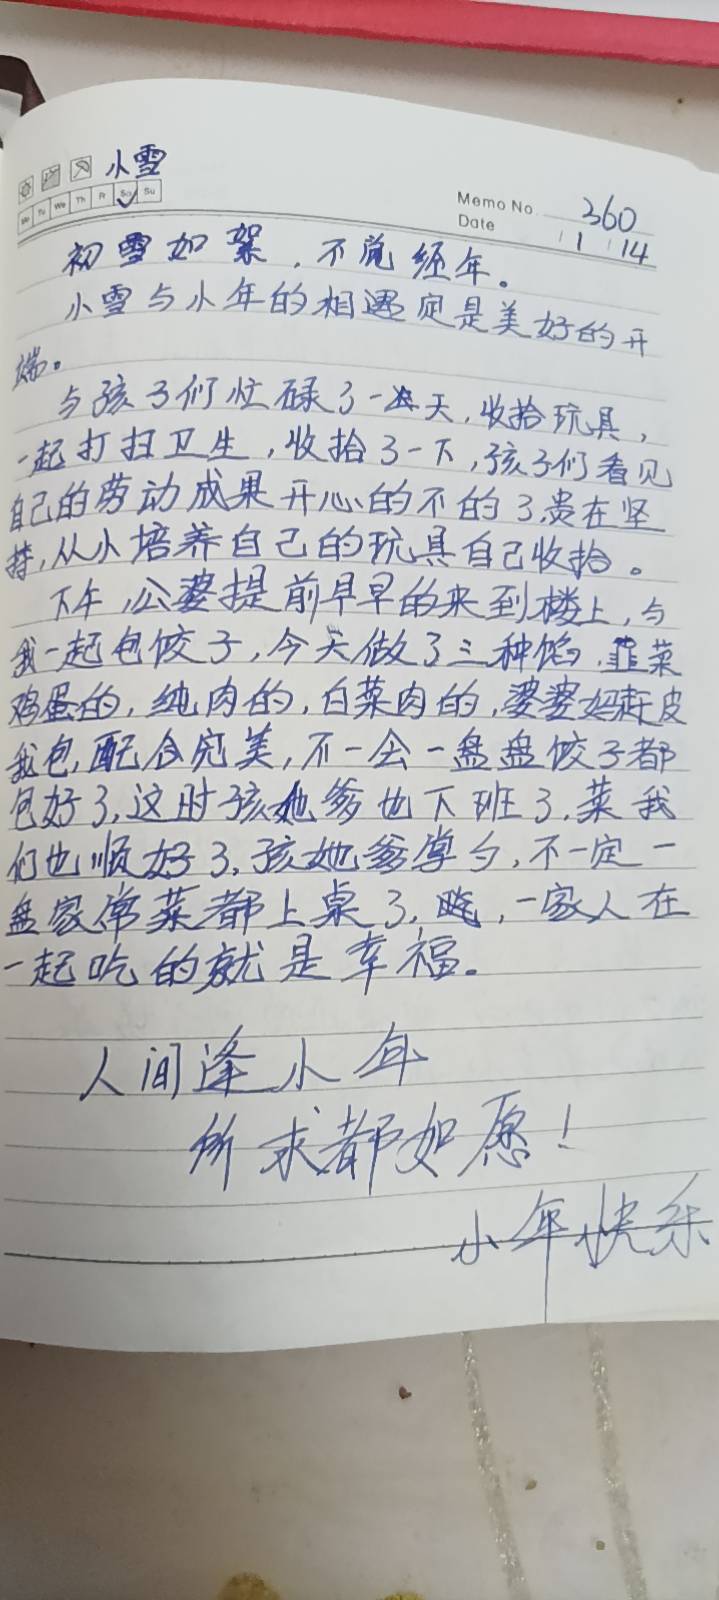 小雪
Mo Tu We Th Fr Sa Su
Memo No. 360
Date 1 14
初雪如絮，不觉经年。
小雪与小年的相遇定是美好的开
端。
与孩子们忙碌了一天，收拾玩具，
一起打扫卫生，收拾了一下，孩子们看见
自己的劳动成果开心的不的了，贵在坚
持，从小培养自己的玩具自己收拾。
下午，公婆提前早早的来到楼上，与
我一起包饺子，今天做了三种馅，韭菜
鸡蛋的，纯肉的，白菜肉的，婆婆妈赶皮
我包，配合完美，不一会一盘盘饺子都
包好了，这时孩她爹也下班了，菜我
们也顺好了，孩她爹掌勺，不一定一
盘家常菜都上桌了，一家人在
一起吃的就是幸福。
人间逢小年
所求都如愿！
小年快乐